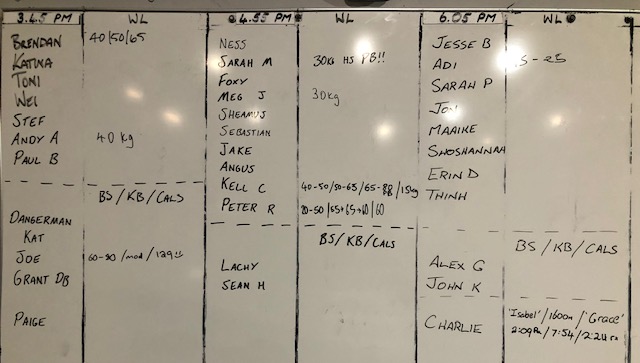 3.45 PM WL
BRENDAN 40/50/65
KATINA
TONI
WEI
STEF
ANDY A 40 kg
PAUL B
BS/KB/CALS
DANGERMAN
KAT
JOE 60-80/mod/129
GRANT DB
PAIGE
4.55 PM WL
NESS
SARAH M 30KG HS PB!!
FOXY
MEG J 30kg
SHEAMUS
SEBASTIAN
JAKE
ANGUS
KELL C 40-50/50-65/65-88/15kg
PETER R
BS/KB/CALS
LACHY
SEAN H
6.05 PM WL
JESSE B
ADI
SARAH P
JON
MAAIKE
SHOSHANNAH
ERIN D
THINH
BS/KB/CALS
ALEX G
JOHN K
'Isabel'/1600m/'Grace'
CHARLIE 2:09 Rx/7:54/2:24 rx